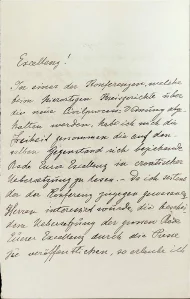 Excellenz!
In einer der Konferenzen, welche
beim hierortigen Kreisgerichte über
die neue Civilprocess Ordnung abge-
halten werden, habe ich mir die
Freiheit genommen die auf den-
selben Gegenstand sich beziehende
Rede Eurer Excellenz in croatischer
Uebersetzung zu lesen. – Da ich
der der Konferenz zugegen gewesenen
Herren interessirt wurde, die
dene Uebersetzung der grossen Rede
Eurer Excellenz durch die Pres-
se veröffentlichen, so erlaube ich